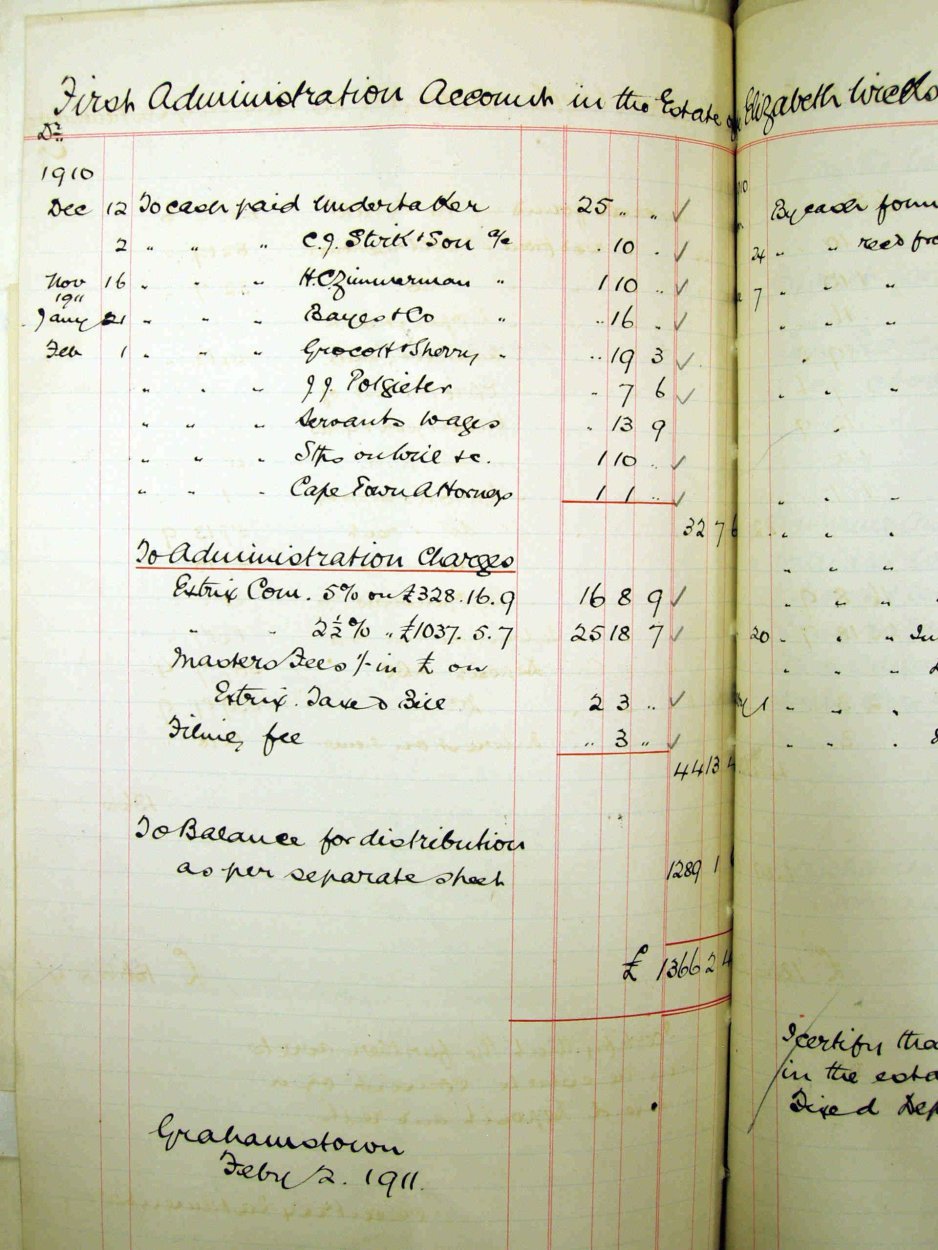 First Administration Account in the Estate of Elizabeth Wicks
Dr
1910
Dec 12 To cash paid Undertaker 25 " " ✓
2 " " " C.J. Stirk & Son a/c " 10 " ✓
Nov 16 " " " H.C. Zimmerman " 1 10 " ✓
1911
Jany 21 " " " Bayes & Co " " 16 " ✓
Feb 1 " " " Grocott & Sherry " " 19 3 ✓
" " " J.J. Potgieter " 7 6 ✓
" " " Servants Wages " 13 9
" " " Stps on Will &c. 1 10 " ✓
" " " Cape Town Attorneys 1 1 " ✓
32 7 6
To Administration Charges
Extrix Com. 5% on £328.16.9 16 8 9 ✓
" " 2½% " £1037.5.7 25 18 7 ✓
Masters Fees 1/- in £ on
Extrix. Taxed Bill 2 3 " ✓
Filing fee " 3 " ✓
44 13 4
To Balance for distribution
as per separate sheet 1289 1
£ 1366 2 4
Grahamstown
Feby 2. 1911.
By cash foun
24 " " recd fro
7 " " "
" " "
"
" " "
"
" " "
" " "
" " "
" " "
20 " " " In
" " "
1 " " "
" " "
I certify tha
in the esta
Fixed Dep